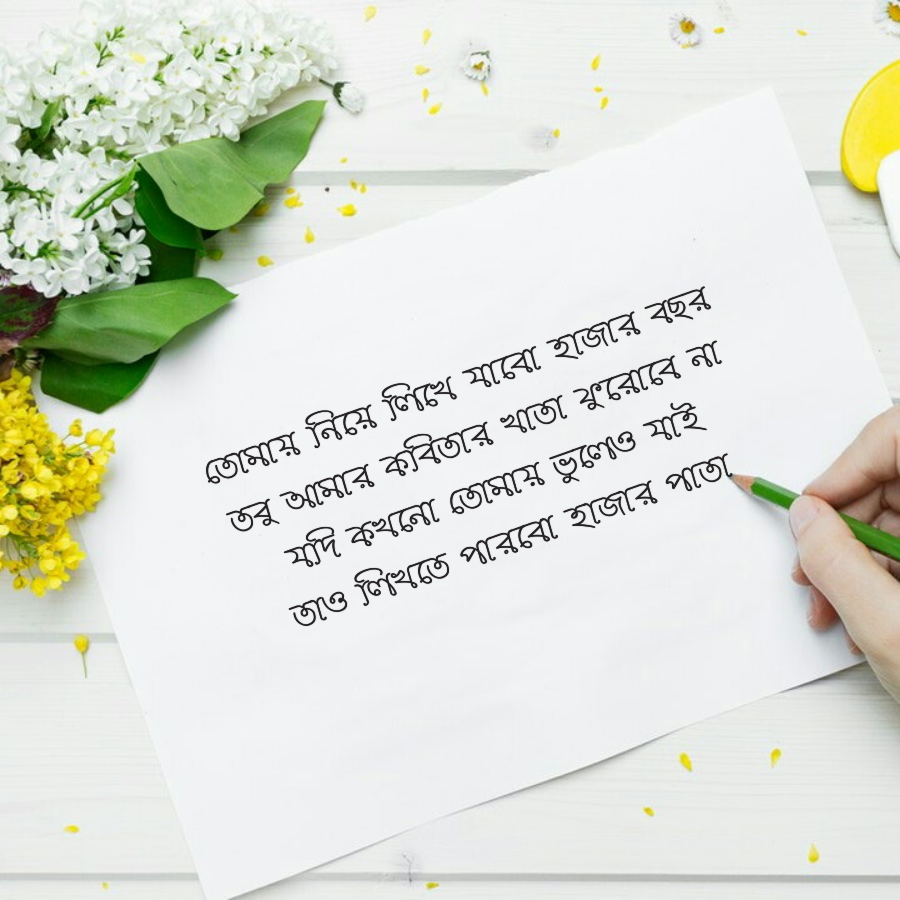 তোমায় নিয়ে লিখে যাবো হাজার বছর
তবু আমার কবিতার খাতা ফুরোবে না
যদি কখনো তোমায় ভুলেও যাই
তাও লিখতে পারবো হাজার পাতা